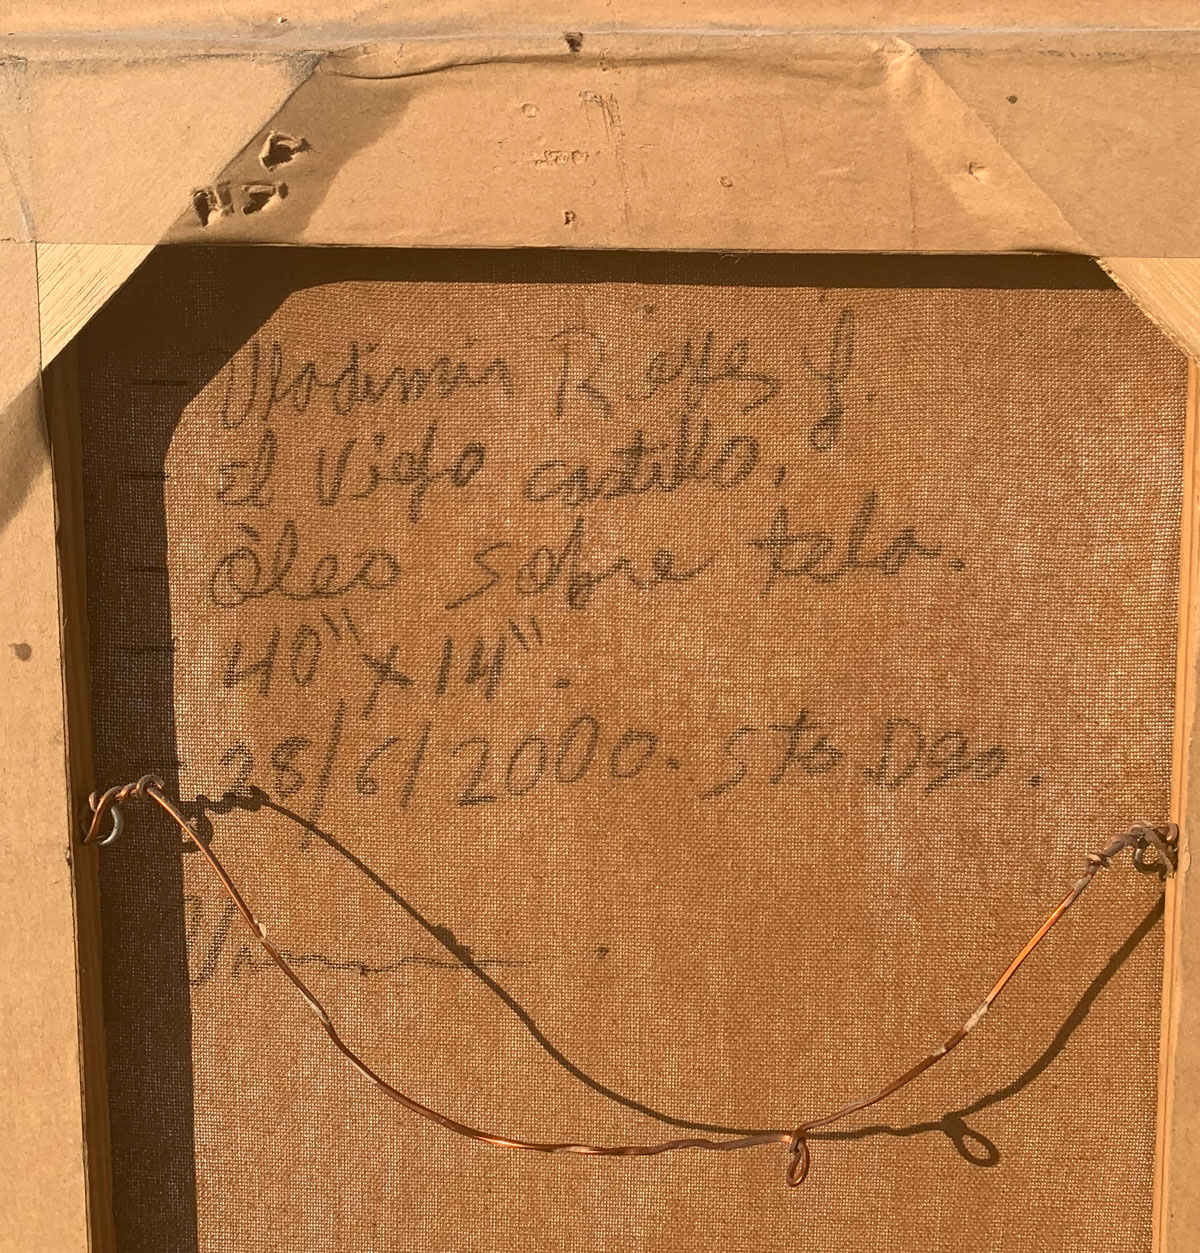 Vladimir Reyes Y.
El Viejo castillo.
Òleo sobre tela.
40" x 14".
28/6/2000. Sto. Dgo.